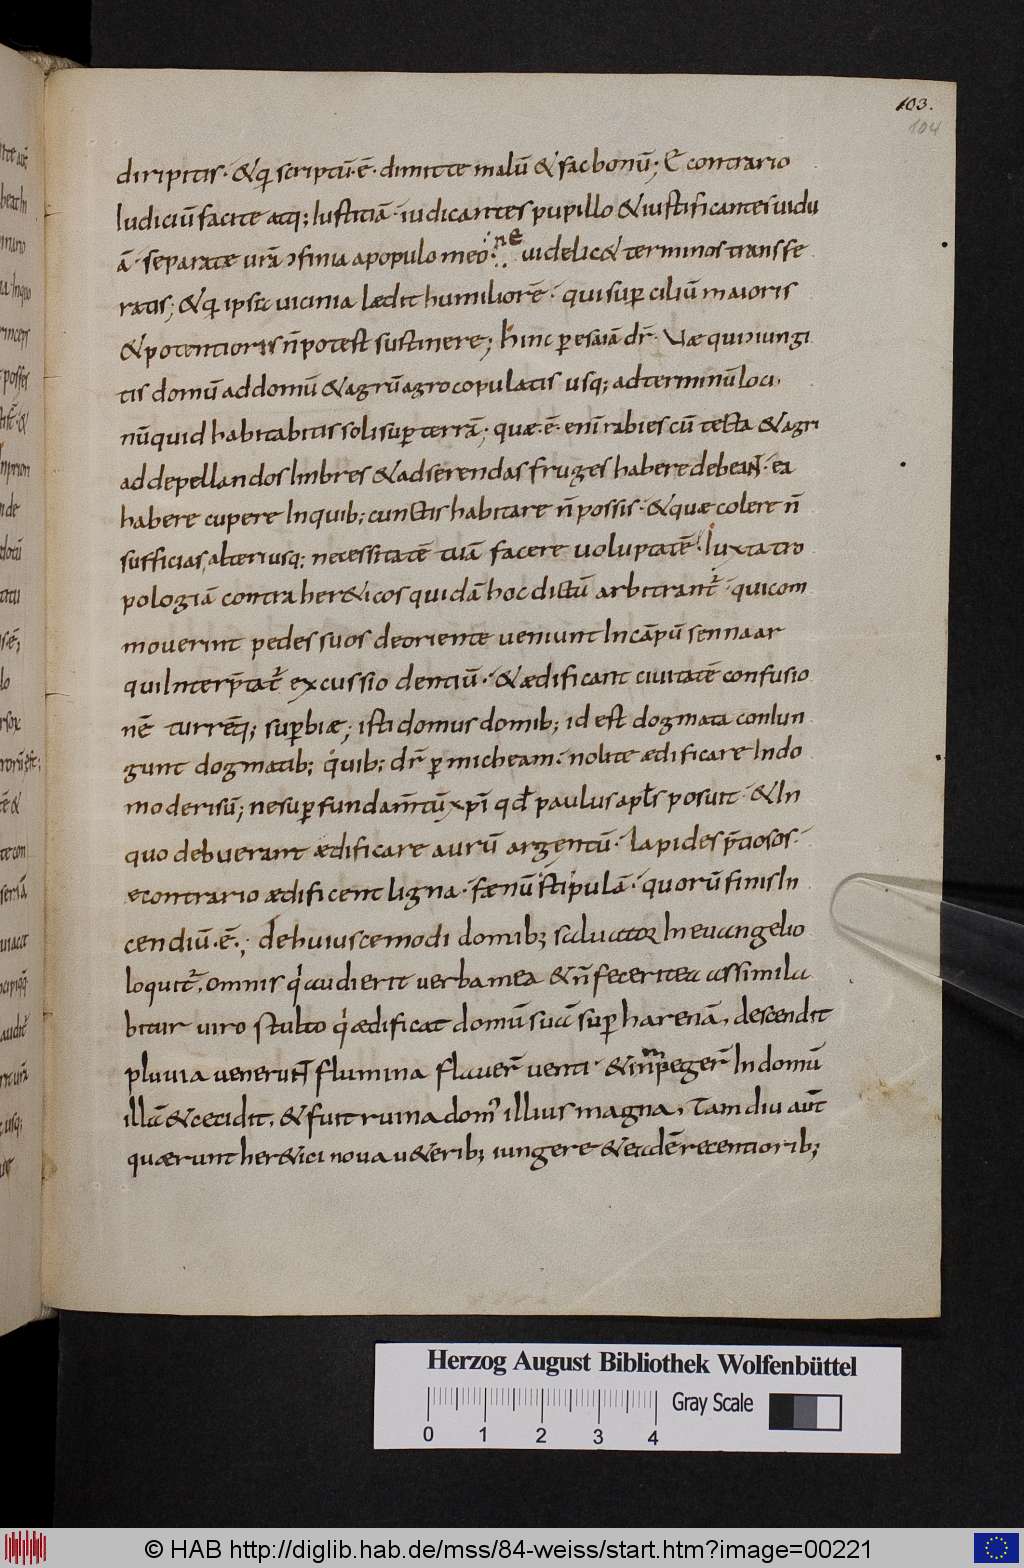 103.
104
diripitis· &q scriptū·ē· dimitte malū & fac bonū; E contrario
Iudiciū facite atq; Iustitiā· iudicantes pupillo & iustificantes uidu
ā· separate urā ɔfinia a populo meo· ne uidelic& terminos transfe
ratis; &q ipse uicinia lædit humiliorē· qui supercilium maioris
& potentioris n̄ potest sustinere; hinc p esaiā dr̄· Væ qui iungi
tis domū ad domū & agrū agro copulatis usq; ad terminū loci,
nūquid habitabitis soli sup terrā; quæ·ē· enī rabies cū tecta & agri
ad depellandos Imbres & ad serendas fruges habere debeant· ea
habere cupere In quib; cunctis habitare n̄ possis· & quæ colere n̄
sufficias, alteriusq; necessitatē tuā facere uoluptatē· Iuxta tro
pologiā contra her&icos quidā hoc dictū arbitrant᷑· qui com
moverint pedes suos de oriente veniunt In cāpū sennaar
qui Interp̄tat᷑ excussio dentiū· & ædificant ciuitatē confusio
nē turrēq; supbiæ; isti domus domib; id est dogmata coniun
gunt dogmatib; qib; dr̄ p micheam· nolite ædificare In do
mo derisū; ne sup fundam̄tū xpī qd paulus apl̄s posuit· & In
quo debuerant ædificare aurū argentū· lapides p̄tiosos·
e contrario ædificent ligna· fænū stipulā· quorū finis In
cendiū·ē·; de huiuscemodi domib; saluator In euangelio
loquit᷑, omnis q audierit uerba mea & n̄ fecerit ea assimila
bitur uiro stulto q ædificat domū suā sup harenā, descendit
pluuia uenerunt flumina flauer̄ uenti· & inpeger̄ In domū
illā & cecidit, & fuit ruina dom' illius magna, Tam diu aūt
quærunt her&ici noua u&erib; iungere & eadē recentiorib;
Herzog August Bibliothek Wolfenbüttel
Gray Scale
0 1 2 3 4
© HAB http://diglib.hab.de/mss/84-weiss/start.htm?image=00221